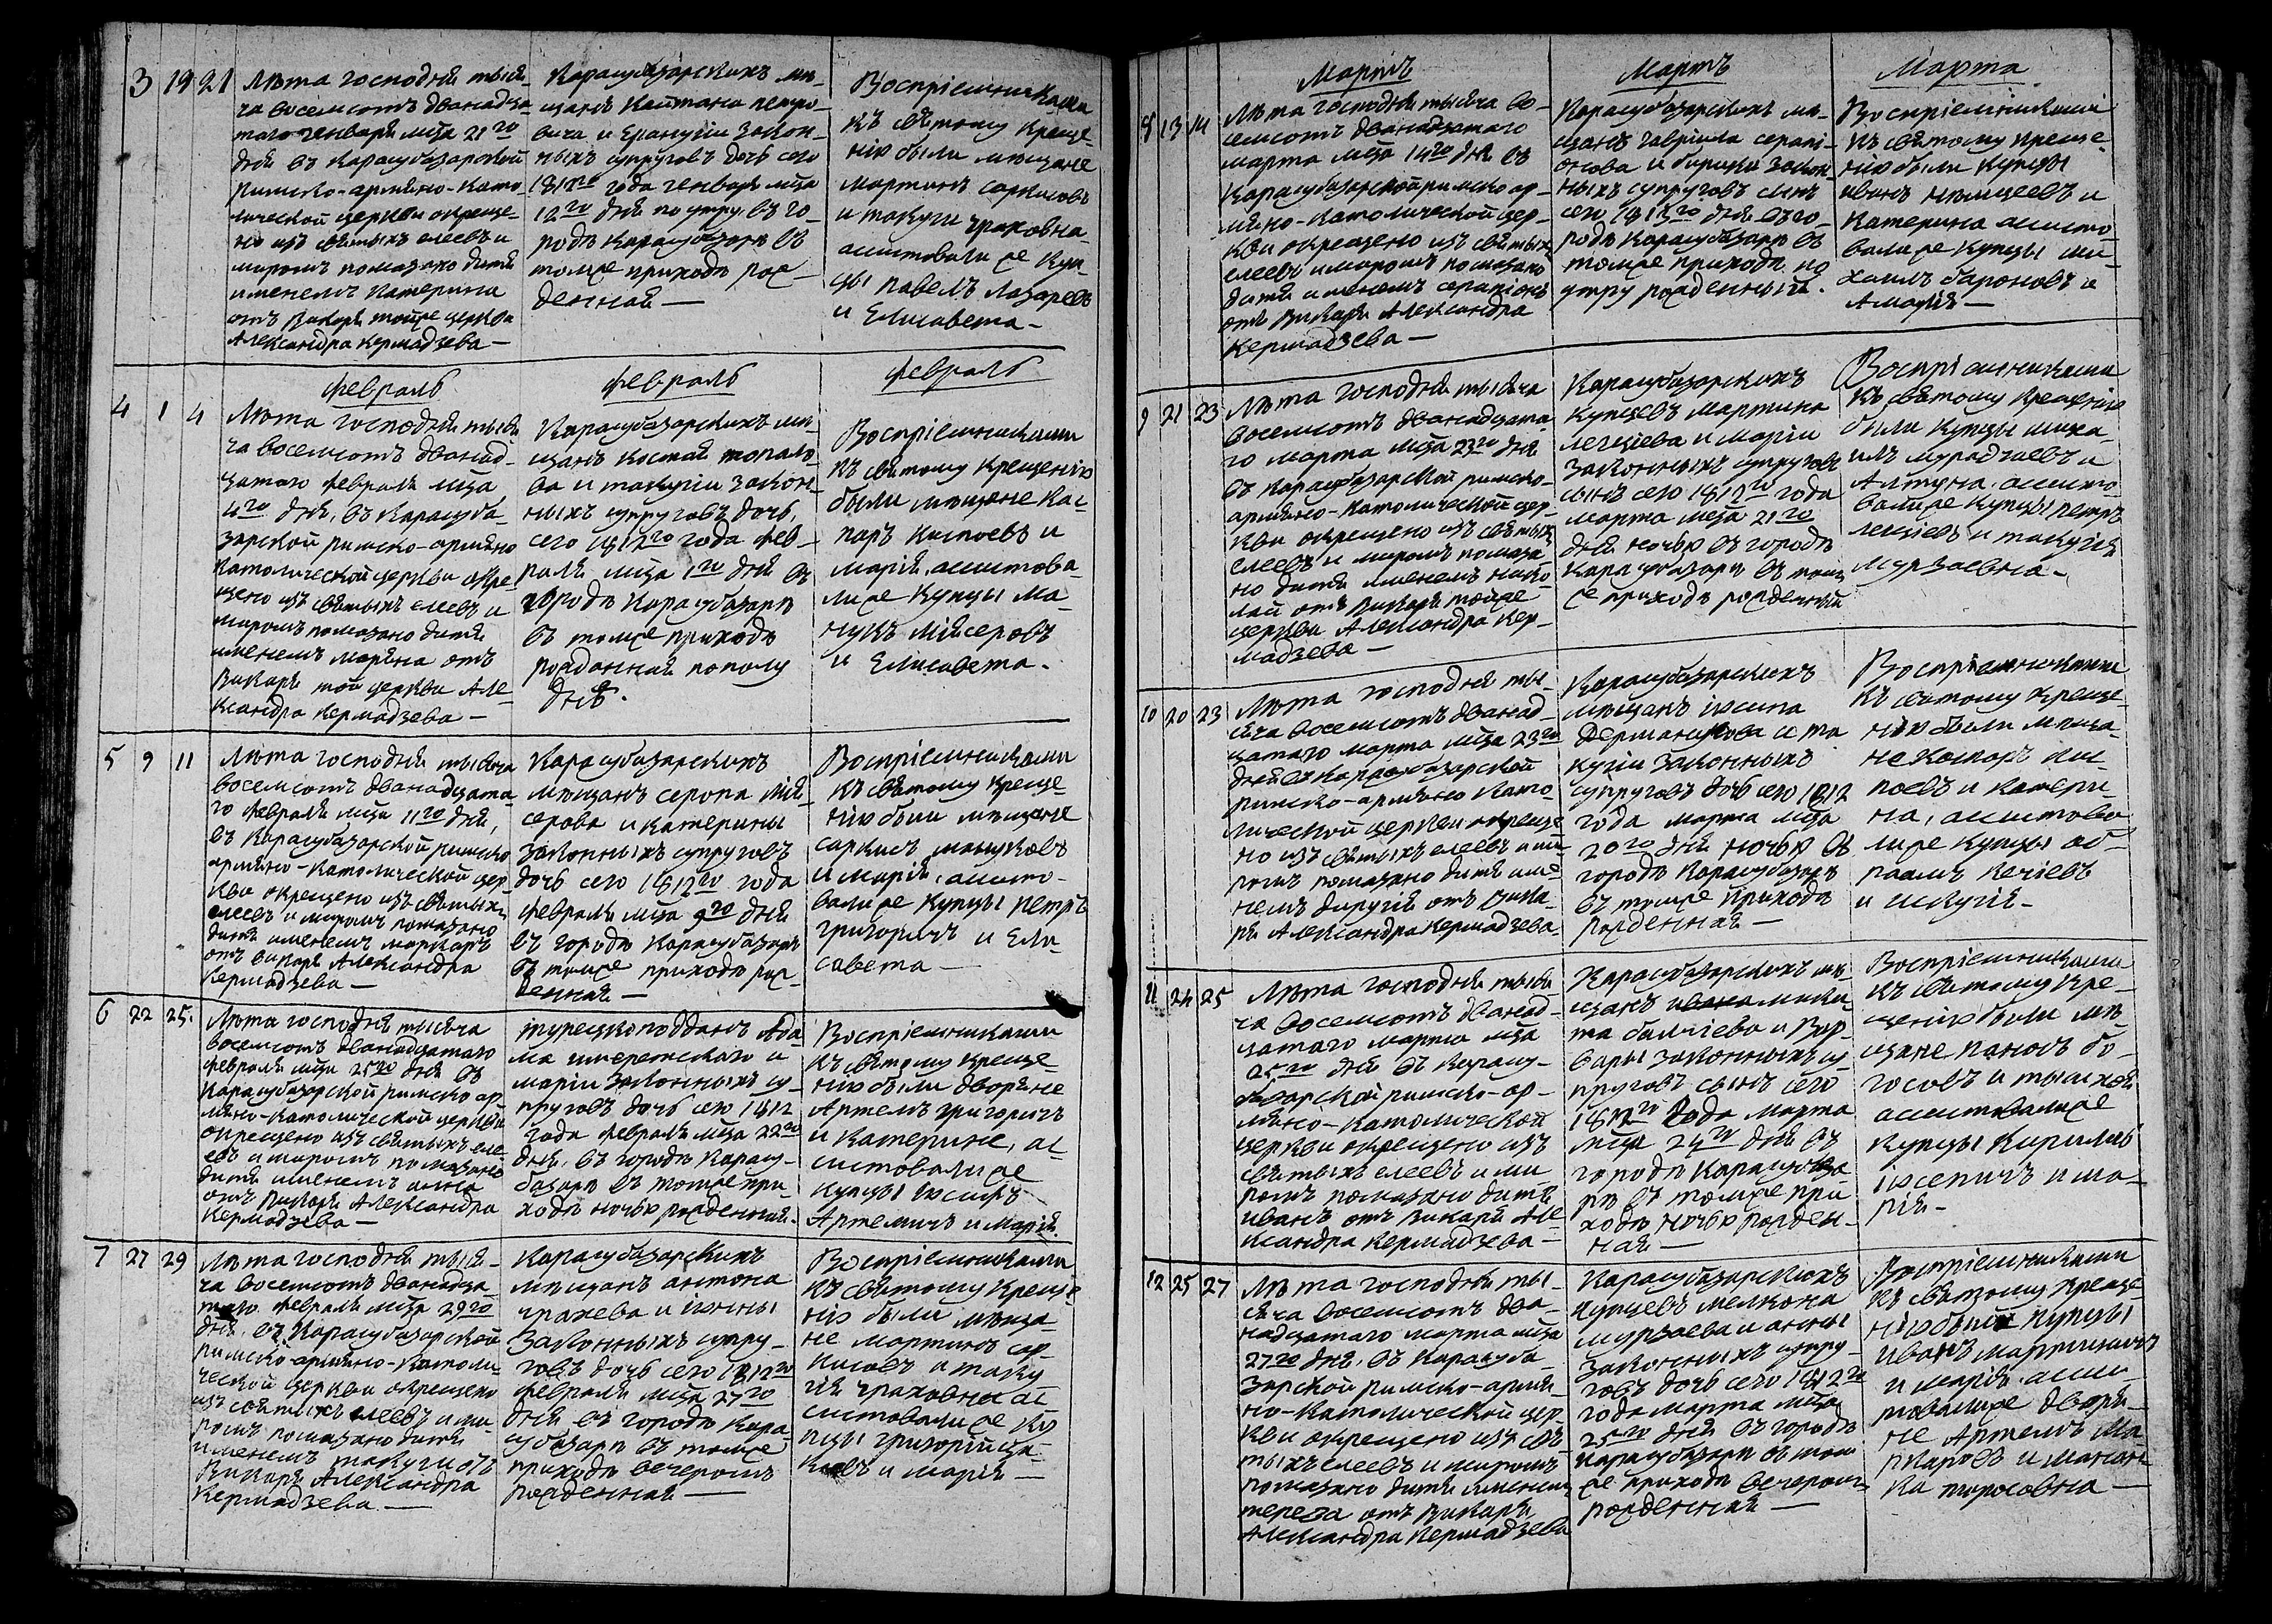 3 19 21
Лѣта господня тыся-
ча восемсотъ дванадца
таго генваря мца 21го
дня въ Карасубазарской
римско-армяно-като
лической церкви окреще-
но изъ святыхъ елеевъ и
миромъ помазано дитя
именемъ Катерина
отъ Викаря тойже церкви
Александра Кермадзева —
Карасубазарскихъ мѣ-
щанъ Каитана петро-
вича и закон-
ныхъ супруговъ дочь сего
1812го года генваря мца
дня по утру въ го-
родѣ Карасубазарѣ въ
томже приходѣ рож-
денная —
Воспріемниками
къ святому креще-
нію были мѣщане
мартинъ саркисовъ
и такуги граховна
асистовали же Куп-
цы павелъ лазаревъ
и Елисавета —
4 1 4
февраль
Лѣта господня тыся
ча восемсотъ дванад-
цатаго февраля мца
4го дня, въ Карасуба-
зарской римско-армяно
католической церкви окре-
щено изъ святыхъ елеевъ и
миромъ помазано дитя
именемъ маряна отъ
Викаря той церкви Але-
ксандра Кермадзева —
февраль
Карасубазарскихъ мѣ-
щанъ Костая топало-
ва и такугии закон-
ныхъ супруговъ дочь,
сего 1812го года фев-
раля мца 1го дня въ
городѣ Карасубазарѣ
въ томже приходѣ
рожданная пополу
дни.
февраль
Воспріемниками
къ святому крещенію
были мѣщане Кас-
паръ Киспоевъ и
марія, асистова-
лиже Купцы ма-
нукъ міясеровъ
и Елисавета.
5 9 11
Лѣта господня тысяча
восемсотъ дванадцата-
го февраля мца 11го дня,
въ Карасубазарской римско
армяно-католической цер
кви окрещено изъ святыхъ
елеевъ и миромъ помазано
дитя именемъ маркаръ
отъ викаря Александра
Кермадзева —
Карасубазарскихъ
мѣщанъ серопа мія-
серова и катерины
законныхъ супруговъ
дочь сего 1812го года
февраля мца 9го дня
въ городѣ Карасубазарѣ
въ томже приходѣ рож-
денная —
Воспріемниками
къ святому креще-
нію были мѣщане
саркисъ мануковъ
и марія, асисто-
валиже Купцы петръ
григоричъ и Ели-
савета —
6 22 25.
Лѣта господня тысяча
восемсотъ дванадцатаго
февраля мца 25го дня въ
Карасубазарской римско ар
мяно-католической церкви
окрещено изъ святыхъ еле-
евъ и миромъ помазано
дитя именемъ анна
отъ Викаря Александра
Кермадзева —
турецкоподданъ Ада
ма имеретскаго и
маріи законныхъ су-
пруговъ дочь сего 1812
года февраля мца 22го
дня, въ городѣ Карасу-
базарѣ въ томже при-
ходѣ ночью рожденная.
Воспріемниками
къ святому креще-
нію были дворяне
Артемъ григоричъ
и Катерине, ас
систовали же
Купцы іосифъ
Артемичъ и марія.
7 27 29
Лѣта господня тыся-
ча восемсотъ дванадца
таго февраля мца 29го
дня, въ Карасубазарской
римско-армяно-католи-
ческой церкви окрещено
изъ святыхъ елеевъ и ми-
ромъ помазано дитя
именемъ такуги отъ
Викаря Александра
Кермадзева. —
Карасубазарскихъ
мѣщанъ антона
грахева и іоанны
законныхъ супру-
говъ дочь сего 1812го
февраля мца 27го
дня въ городѣ Кара-
субазарѣ въ томже
приходѣ вечеромъ
рожденная —
Воспріемниками
къ святому креще
нію были мѣща-
не мартинъ сар-
кисовъ и таку
гія граховна ас
систовали же Ку
пцы григорій
и марія —
8 13 14
Мартъ
Лѣта господня тысяча во-
семсотъ дванадцатаго
марта мца 14го дня въ
Карасубазарской римско ар-
мяно-католической цер-
кви окрещено изъ святыхъ
елеевъ и миромъ помазано
дитя именемъ серапіонъ
отъ Викаря Александра
Кермадзева —
Мартъ
Карасубазарскихъ мѣ-
щанъ гавріила серапі-
онова и закон-
ныхъ супруговъ сынъ
сего дня въ го-
родѣ Карасубазарѣ въ
томже приходѣ по
утру рожденный.
Марта
Воспріемниками
къ святому креще-
нію были Купцы
иванъ и
Катерина асисто-
вали же Купцы ми-
хаилъ бароновъ и
Амарія —
9 21 23
Лѣта господня тысяча
восемсотъ дванадцата
го марта мца 23го дня
въ Карасубазарской римско-
армяно-католической цер-
кви окрещено изъ святыхъ
елеевъ и миромъ помаза
но дитя именемъ нико-
лай отъ Викаря тойже
церкви Александра Кер-
мадзева —
Карасубазарскихъ
купцевъ мартина
лехціева и маріи
законныхъ супруговъ
сынъ сего 1812го года
марта мца 21го
дня ночью въ городѣ
Карасубазарѣ въ том
же приходѣ рожденный
Воспріемниками
къ святому крещенію
были Купцы миха-
илъ мурадчаевъ и
Алтуна, асисто-
валиже Купцы петръ
лехціевъ и такугія
мурзаевна —
10 20 23
Лѣта господня ты-
сяча восемсотъ дванад-
цатаго марта мца 23го
дня въ Карасубазарской
римско-армяно като-
лической церкви окреще
но изъ святыхъ елеевъ и ми-
ромъ помазано дитя име-
немъ отъ Вика-
ря Александра Кермадзева.
Карасубазарскихъ
мѣщанъ іосипа
Дерманукова и та
кугіи законныхъ
супруговъ дочь сего 1812
года марта мца
20го дня ночью въ
городѣ Карасубазарѣ
въ томже приходѣ
рожденная —
Воспріемниками
къ святому креще-
нію были мѣща-
не Каспаръ кис
поевъ и катери-
на, асистова
лиже купцы аб-
раамъ кечіевъ
и искугія —
11 24 25
Лѣта господня тыся
ча восемсотъ дванад-
цатаго марта мца
25го дня въ Карасу-
базарской римско-ар-
мяно-католической
церкви окрещено изъ
святыхъ елеевъ и ми
ромъ помазано дитя
иванъ отъ викаря Але-
ксандра Кермадзева —
Карасубазарскихъ мѣ-
щанъ ивана мики
та и Вар
вары законныхъ су-
пруговъ сынъ сего
1812го года марта
мца 24го дня въ
городѣ Карасубаза
рѣ въ томже при
ходѣ ночью рожден-
ная —
Воспріемниками
къ святому кре-
щенію были мѣ
щане паносъ бо-
госовъ и
ассистовалиже
купцы Кирилъ
іосепичъ и ма-
рія —
12 25 27
Лѣта господня ты-
сяча восемсотъ два-
надцатаго марта мца
27го дня, въ Карасуба-
зарской римско-армя-
но-католической цер-
кви окрещено изъ свя
тыхъ елеевъ и миромъ
помазано дитя именемъ
тереза отъ Викаря
Александра Кермадзева
Карасубазарскихъ
купцевъ мелкона
мурзаева и анны
законныхъ супру-
говъ дочь сего 1812го
года марта мца
25го дня въ городѣ
Карасубазарѣ въ том
же приходѣ вечеромъ
рожденная —
Воспріемниками
къ святому креще
нію были Купцы
иванъ мартиничъ
и марія асси-
товалиже дворя-
не Артемъ Ма
ркаровъ и манан-
ка торосовна —